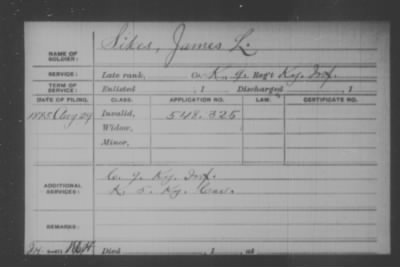 NAME OF SOLDIER: Sikes, James L.
SERVICE: Late rank, Co. K, 9. Reg't Ky. Inf.
TERM OF SERVICE: Enlisted , 1 Discharged , 1
DATE OF FILING. CLASS. APPLICATION NO. LAW. CERTIFICATE NO.
1885 Aug 29 Invalid, 548.325
Widow,
Minor,
ADDITIONAL SERVICES: Ky. Inf.
K. 5. Ky. Cav.
REMARKS:
Died , 1 , at